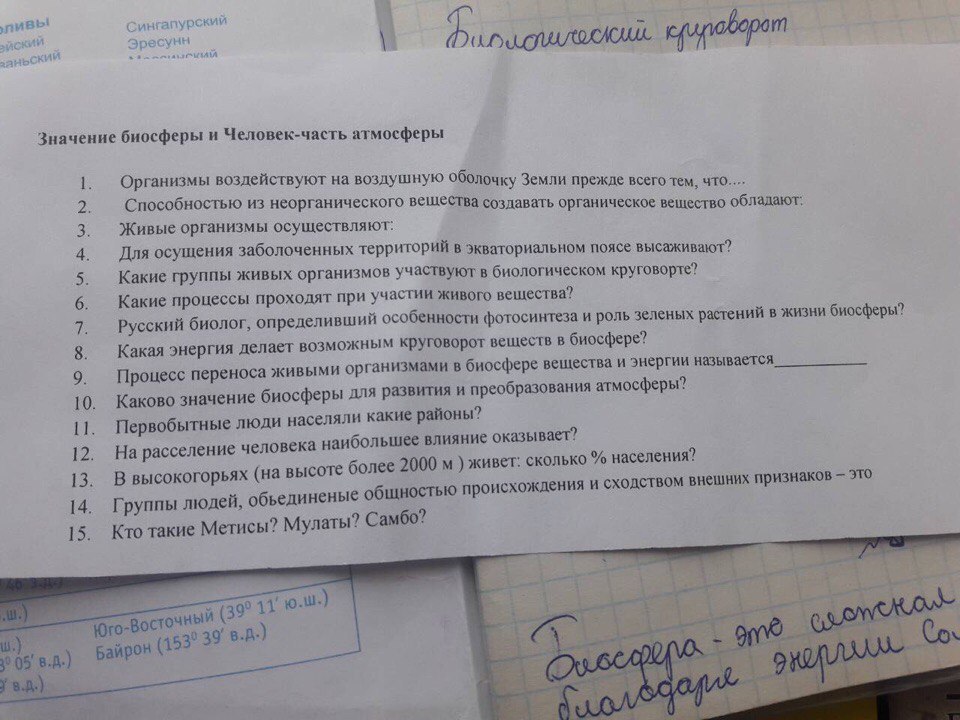 Сингапурский
Эресунн
Биологический круговорот
Значение биосферы и Человек-часть атмосферы
1. Организмы воздействуют на воздушную оболочку Земли прежде всего тем, что....
2. Способностью из неорганического вещества создавать органическое вещество обладают:
3. Живые организмы осуществляют:
4. Для осущения заболоченных территорий в экваториальном поясе высаживают?
5. Какие группы живых организмов участвуют в биологическом круговорте?
6. Какие процессы проходят при участии живого вещества?
7. Русский биолог, определивший особенности фотосинтеза и роль зеленых растений в жизни биосферы?
8. Какая энергия делает возможным круговорот веществ в биосфере?
9. Процесс переноса живыми организмами в биосфере вещества и энергии называется__________
10. Каково значение биосферы для развития и преобразования атмосферы?
11. Первобытные люди населяли какие районы?
12. На расселение человека наибольшее влияние оказывает?
13. В высокогорьях (на высоте более 2000 м ) живет: сколько % населения?
14. Группы людей, обьединеные общностью происхождения и сходством внешних признаков – это
15. Кто такие Метисы? Мулаты? Самбо?
Юго-Восточный (39⁰ 11′ ю.ш.)
05′ в.д.) Байрон (153⁰ 39′ в.д.)
в.д.)
Биосфера - это сложная
благодаря энергии